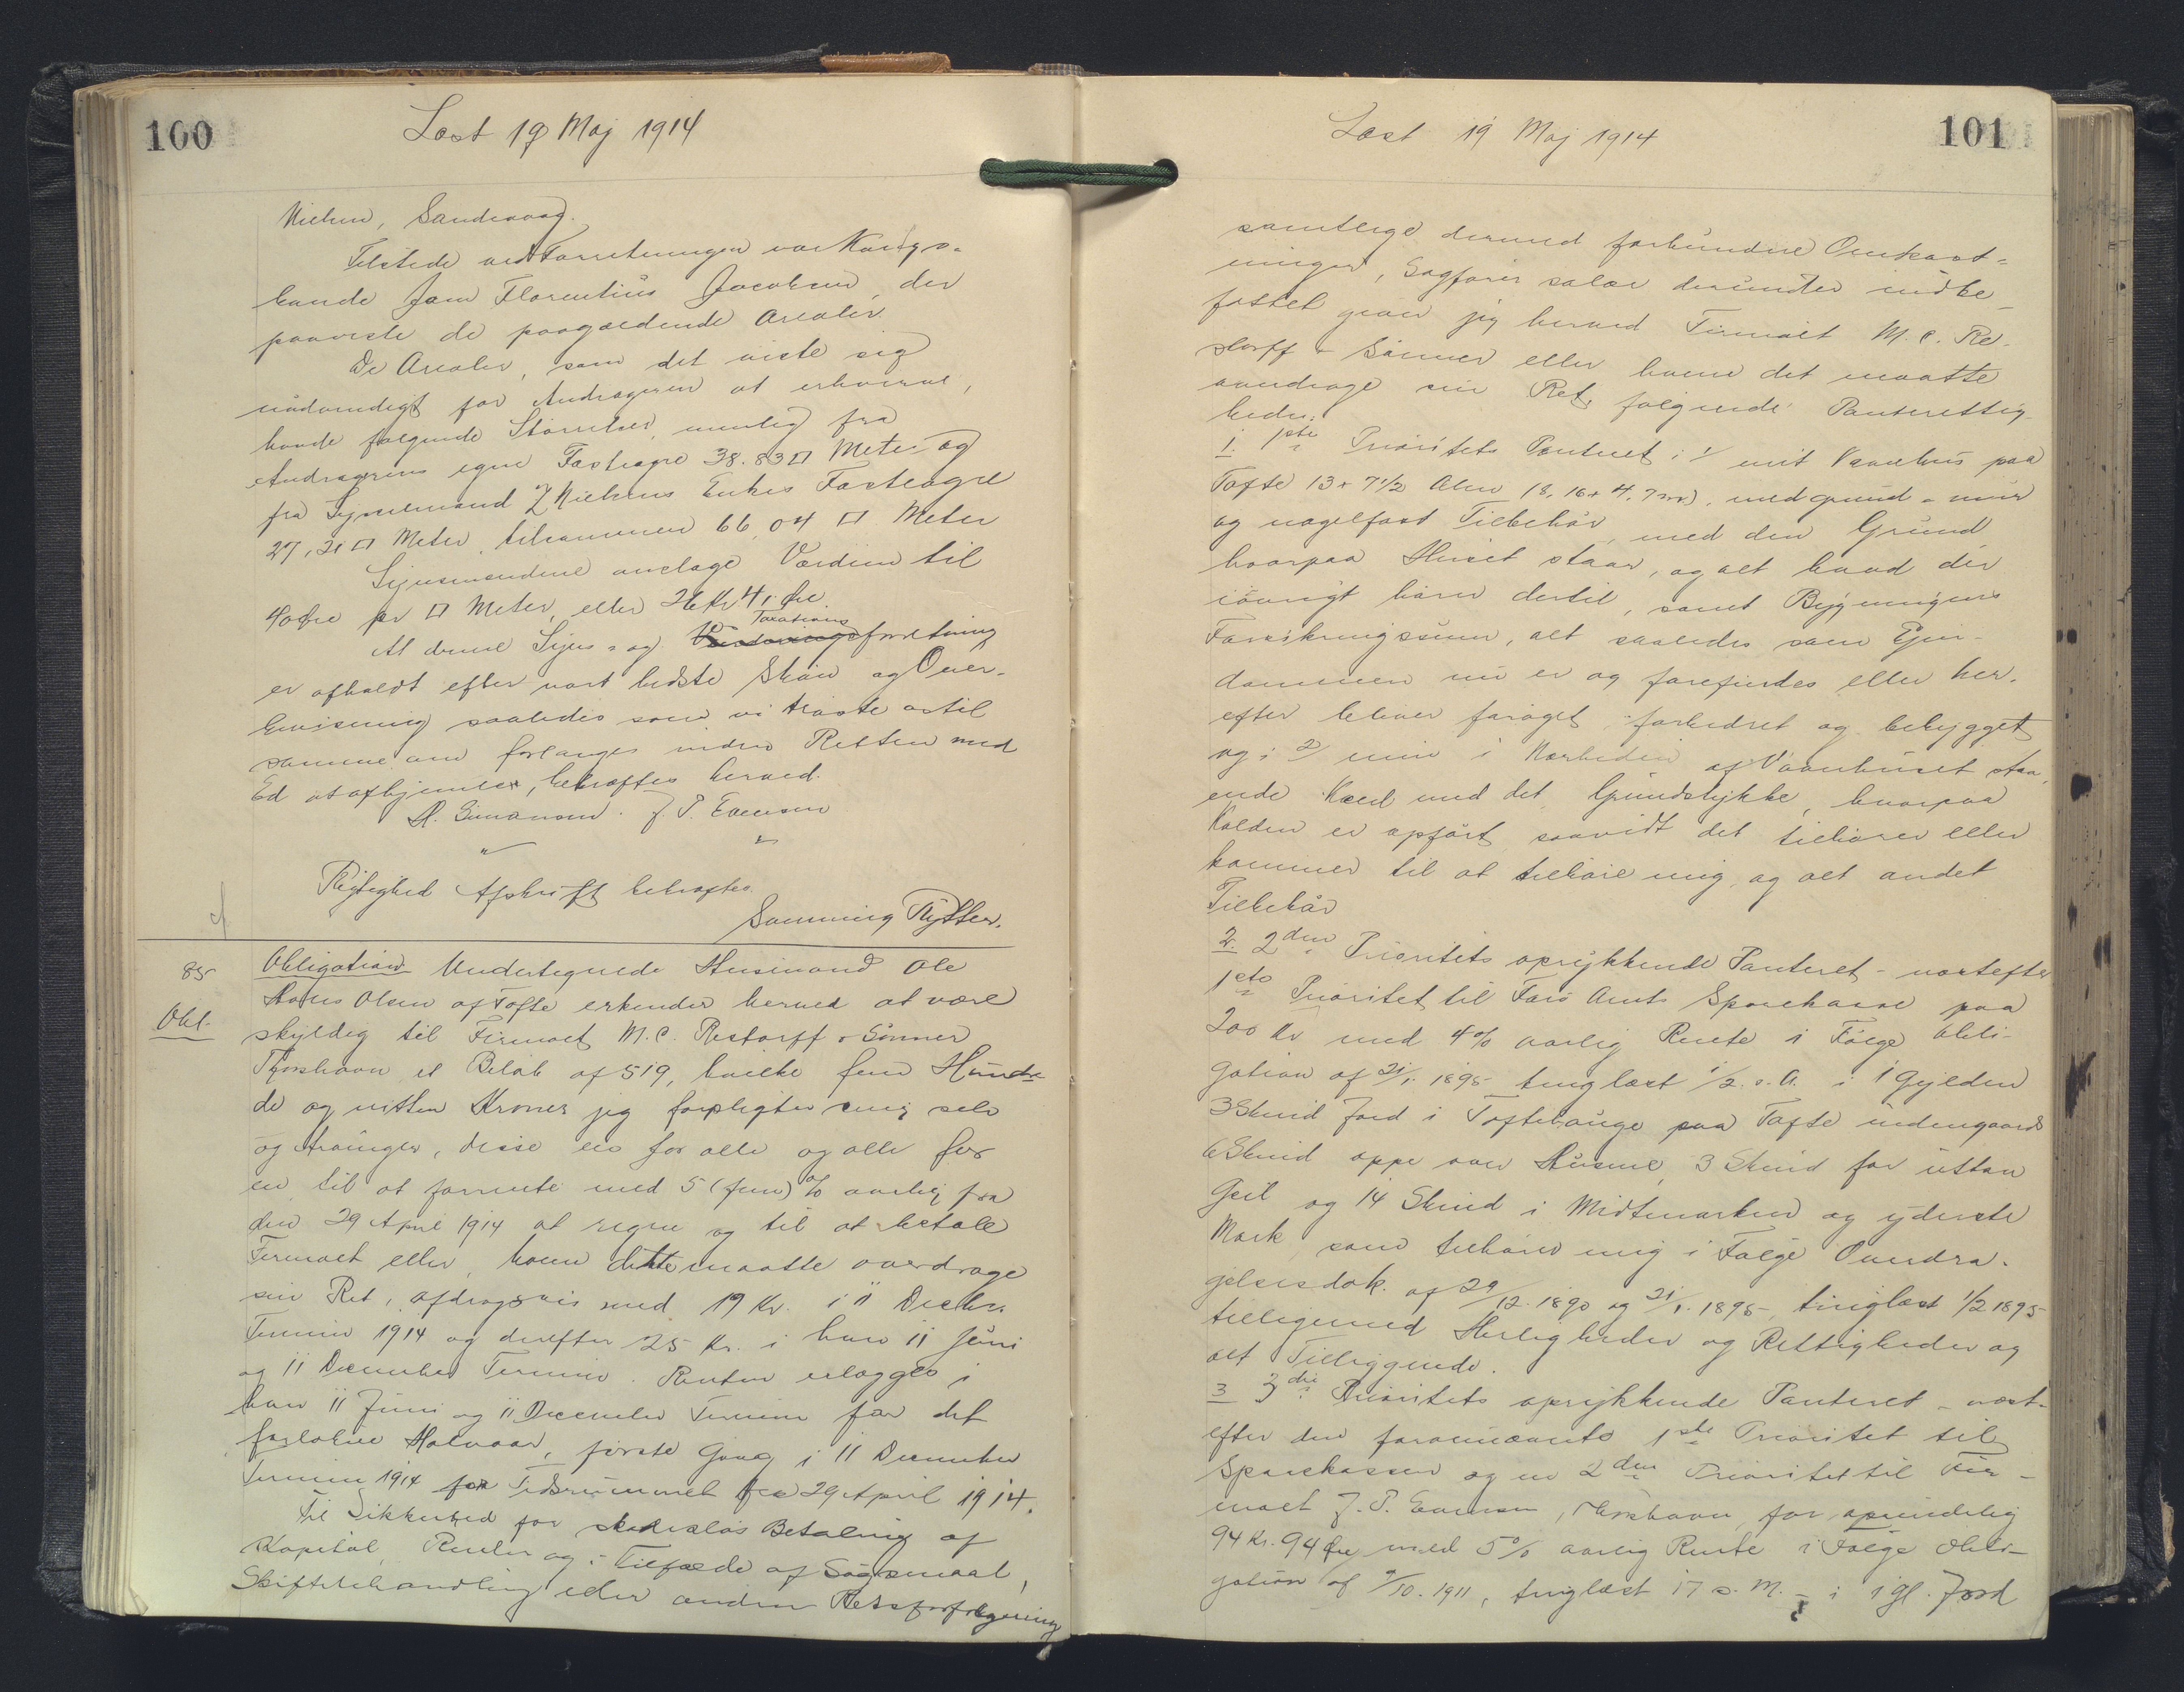 100
Læst 19 Maj 1914
Nielsen, Sandevaag.
Tilstede ved Forretningen var Kongs-
bonde Jens Florentius Jacobsen, der
paaviste de paagældende Arealer.
De Arealer, som det viste sig
nødvendigt for Andrageren at erhverve,
havde følgende Størrelser, nemlig fra
Andragerens egne Fæsteagre 38.83 □ Meter og
fra Sysselmand Z Nielsens Enkes Fæsteagre
27,21 □ Meter, tilsammen 66,04 □ Meter
Synsmændene anslage Værdien til
40 Øre pr □ Meter, eller 26 Kr 41 Øre.
At denne Syns- og Taxationsforretning
er afholdt efter vort bedste Skøn og Over-
bevisning saaledes som vi trøste os til
samme om forlanges inden Retten med
Ed at afhjemle, bekræftes herved.
D. Simonsen. J. P. Evensen
Rigtighed Afskrift bekræftes.
Samuning Rytter.
cf
85
Obl.
Obligation Undertegnede Husmand Ole
Hans Olsen af Tofte erkender herved at være
skyldig til Firmaet M.C. Restorff & Sønner
Thorshavn et Beløb af 519, hvilke fem Hundre-
de og nitten Kroner jeg forpligter mig selv
og Arvinger, disse en for alle og alle for
en til at forrente med 5 (fem) % aarlig fra
den 29 April 1914 at regne og til at betale
Firmaet eller, hvem dette maatte overdrage
sin Ret, afdragsvis med 19 Kr. i 11 Decbr.
Termin 1914 og derefter 25 Kr. i hver 11 Juni
og 11 December Termin. Renten erlægges i
hver 11 Juni og 11 December Termin for det
forløbne Halvaar, første Gang i 11 December
Termin 1914 for Tidsrummet fra 29 April 1914.
Til Sikkerhed for skadesløs Betaling af
Kapital, Renter og i Tilfælde af Søgsmaal,
Skiftebehandling eller anden Retsforfølgning
101
Læst 19 Maj 1914
samtlige dermed forbundne Omkost-
ninger, Sagfører salær derunder indbe-
fattet giver jeg herved Firmaet M.C. Re-
storff & Sønner eller hvem det maatte
overdrage sin Ret, følgende Panterettig-
heder:
1. 1ste Prioritets Panteret i 1/ mit Vaanhus paa
Tofte 13 x 7 1/2 Alen (8,16 x 4,7 m), med grund- mur
og nagelfast Tilbehør, med den Grund
hvorpaa Huset staar, og alt hvad der
iøvrigt hører dertil, samt Bygningens
Forsikringssum, alt saaledes som Ejen-
dommen nu er og forefindes eller her-
efter bliver forøget forbedret og bebygget
og i 2/ min i Nærheden af Vaanhuset staa-
ende Kæld med det Grundstykke, hvorpaa
Kælden er opført, saavidt det tilhører eller
kommer til at tilhøre mig, og alt andet
Tilbehør
2. 2den Prioritets oprykkende Panteret - næstefter
1ste Prioritet til Færø Amts Sparekasse paa
200 Kr med 4% aarlig Rente i Følge Obli-
gation af 21/1. 1895 tinglæst 1/2. s.A. i 1 Gylden
3 Skind Jord i Toftehauge paa Tofte indengaards
6 Skind oppe over Husene, 3 Skind for uttan
Geil og 14 Skind i Midtmarken og yderste
Mark, som tilhører mig i Følge Overdra-
gelsesdok. af 29/12. 1890 og 21/1. 1895, tinglæst 1/2 1895
tilligemed Herligheder og Rettigheder og
alt Tilliggende.
3 3die Prioritets oprykkende Panteret - næst-
efter den førnævnte 1ste Prioritet til
Sparekassen og en 2den Prioritet til Fir-
maet J. P. Evensen, Thorshavn, for oprindelig
94 Kr. 94 Øre med 5% aarlig Rente i Følge Obli-
gation af 9/10. 1911, tinglæst 17 s. M. - i 1 gl. Jord